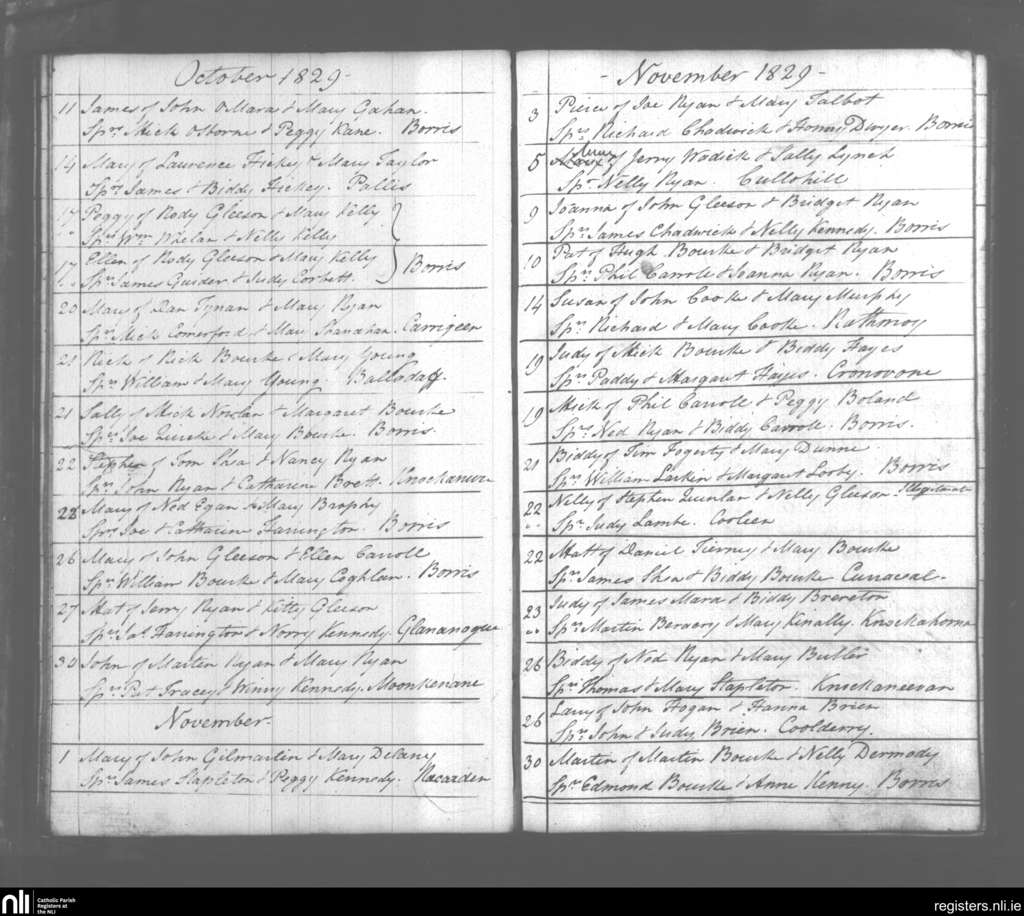 October 1829-
11 James of John OMara & Mary Gahan.
Sprs Mick Osborne & Peggy Kane. Borris
14 Mary of Laurence Hickey & Mary Taylor
Sprs James & Biddy Hickey. Pallis
17 Peggy of Rody Gleeson & Mary Kelly
Sprs Wm Whelan & Nelly Kelly
17 Ellen of Rody Gleeson & Mary Kelly
Sprs James Guider & Judy Corbett. Borris
20 Mary of Dan Tynan & Mary Ryan
Sprs Mick Comerford & Mary Shanahan. Carrigeen
21 Rick of Rick Bourke & Mary Young
Sprs William & Mary Young.
21 Sally of Mick Nowlan & Margaret Bourke
Sprs Joe Quirke & Mary Bourke. Borris.
22 Stephen of Tom Shea & Nancy Ryan
Sprs John Ryan & Catharine Brett. Knockanure
22 Mary of Ned Egan & Mary Brophy
Sprs Joe & Catharine Harrington. Borris
26 Mary of John Gleeson & Ellen Carroll
Sprs William Bourke & Mary Coghlan. Borris
27 Mat of Jerry Ryan & Kitty Gleeson
Sprs Harrington & Norry Kennedy. Glananogue
30 John of Martin Ryan & Mary Ryan
Sprs Pat Tracey & Winny Kennedy. Moonkenane
November.
1 Mary of John Gilmartin & Mary Delany
Sprs James Stapleton & Peggy Kennedy.
- November 1829 -
3 Pierce of Joe Ryan & Mary Talbot
Sprs Richard Chadwick & Honny Dwyer. Borris
5 of Jerry Wodick & Sally Lynch
Spr Nelly Ryan. Cullohill
9 Joanna of John Gleeson & Bridget Ryan
Sprs James Chadwick & Nelly Kennedy. Borris
10 Pat of Hugh Bourke & Bridget Ryan
Sprs Phil Carroll & Joanna Ryan. Borris
14 Susan of John Cooke & Mary Murphy
Sprs Richard & Mary Cooke. Rathmoy
19 Judy of Mick Bourke & Biddy Hayes
Sprs Paddy & Margaret Hayes. Cronovone
19 Mick of Phil Carroll & Peggy Boland
Sprs Ned Ryan & Biddy Carroll. Borris.
21 Biddy of Tim Fogerty & Mary Dunne
Sprs William Larkin & Margaret Looby. Borris
22 Nelly of Stephen Quinlan & Nelly Gleeson. Illegitimate
Spr Judy Lambe. Cooleen
22 Matt of Daniel Tierney & Mary Bourke
Sprs James Shea & Biddy Bourke Curraesal-
23 Judy of James Mara & Biddy Brereton
Sprs Martin Bergery & Mary Kinally. Knockahorna
26 Biddy of Ned Ryan & Mary Butler
Sprs Thomas & Mary Stapleton. Knockaneevan
26 Larry of John Hogan & Hanna Brien
Sprs John & Judy Brien. Coolderry.
30 Martin of Martin Bourke & Nelly Dermody
Sprs Edmond Bourke & Anne Kenny. Borris
nli Catholic Parish
Registers at
the NLI
registers.nli.ie